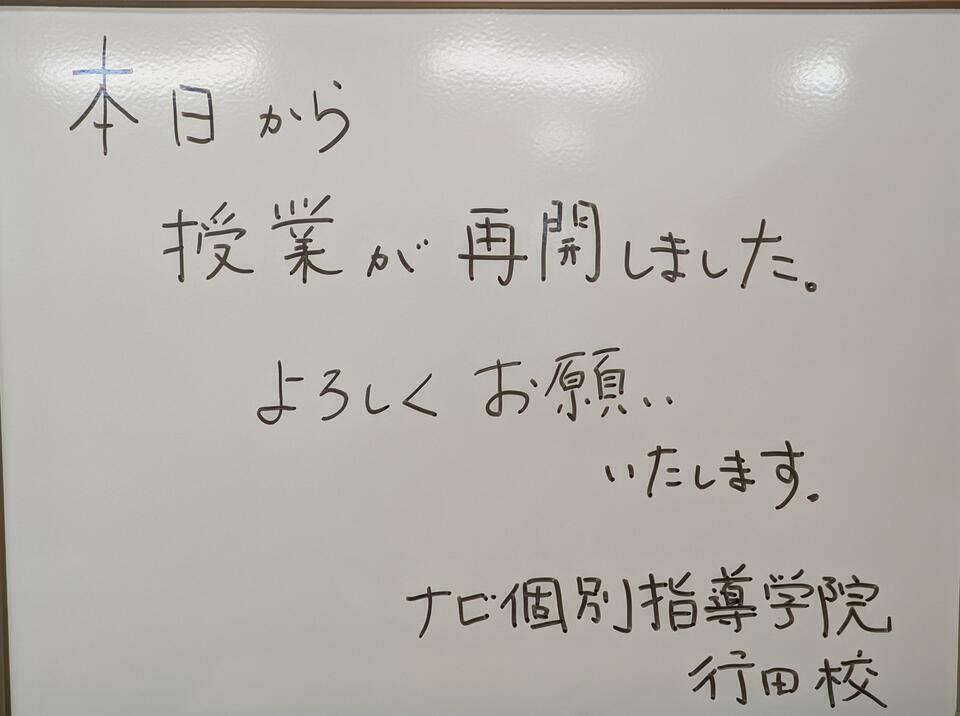 本日から
授業が再開しました。
よろしくお願い
いたします。
ナビ個別指導学院
行田校